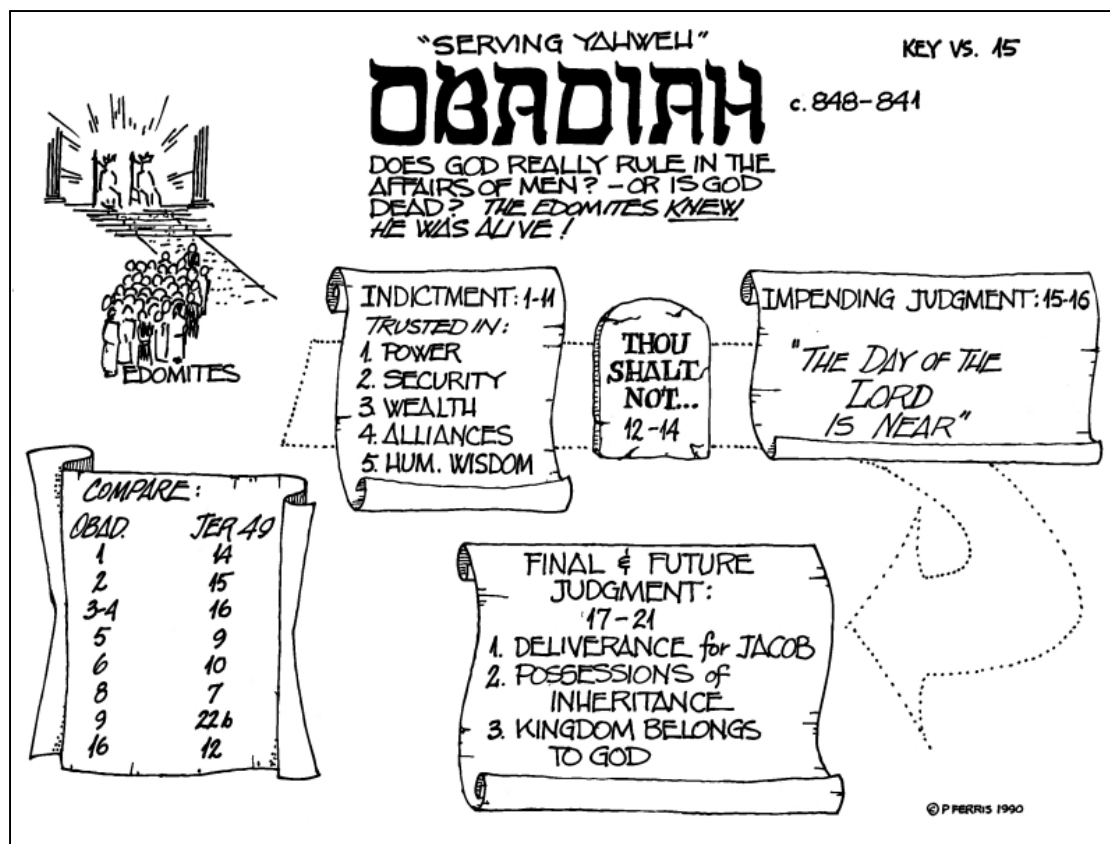 "SERVING YAHWEH"
KEY VS. 15
OBADIAH
c. 848-841
DOES GOD REALLY RULE IN THE
AFFAIRS OF MEN? - OR IS GOD
DEAD? THE EDOMITES KNEW
HE WAS ALIVE!
EDOMITES
INDICTMENT: 1-11
TRUSTED IN:
1. POWER
2. SECURITY
3. WEALTH
4. ALLIANCES
5. HUM. WISDOM
THOU
SHALT
NOT...
12-14
IMPENDING JUDGMENT: 15-16
"THE DAY OF THE
LORD
IS NEAR"
COMPARE:
OBAD. JER 49
1 14
2 15
3-4 16
5 9
6 10
8 7
9 22b
16 12
FINAL & FUTURE
JUDGMENT:
17-21
1. DELIVERANCE for JACOB
2. POSSESSIONS of
INHERITANCE
3. KINGDOM BELONGS
TO GOD
© P FERRIS 1990